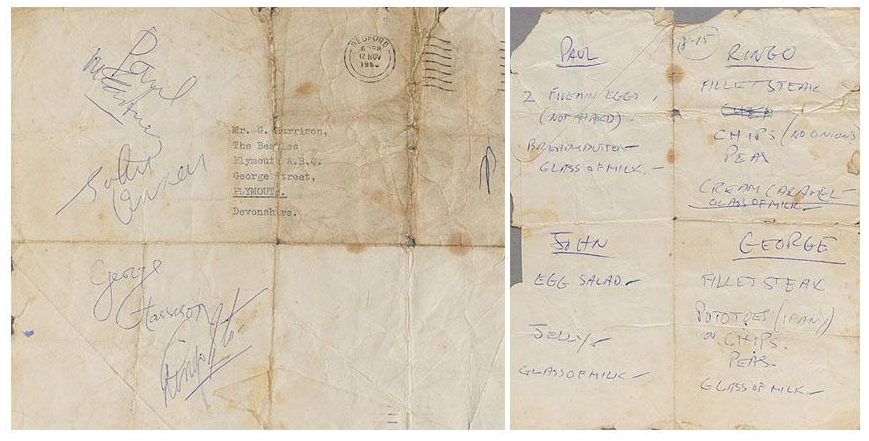 Paul
McCartney
John
Lennon
George
Harrison
Ringo
BEDFORD
12 NOV
Mr. G. Harrison,
The Beatles
Plymouth A.B.C.
George Street,
PLYMOUTH.
Devonshire.
PAUL
2 EGGS
(NOT HARD)
GLASS OF MILK
JOHN
EGG SALAD
JELLY
GLASS OF MILK
8-15
RINGO
FILLET STEAK
CHIPS (NO ONIONS
PEAS
CREAM CARAMEL
GLASS OF MILK
GEORGE
FILLET STEAK
POTOTOES (IF ANY)
OR CHIPS.
PEAS
GLASS OF MILK